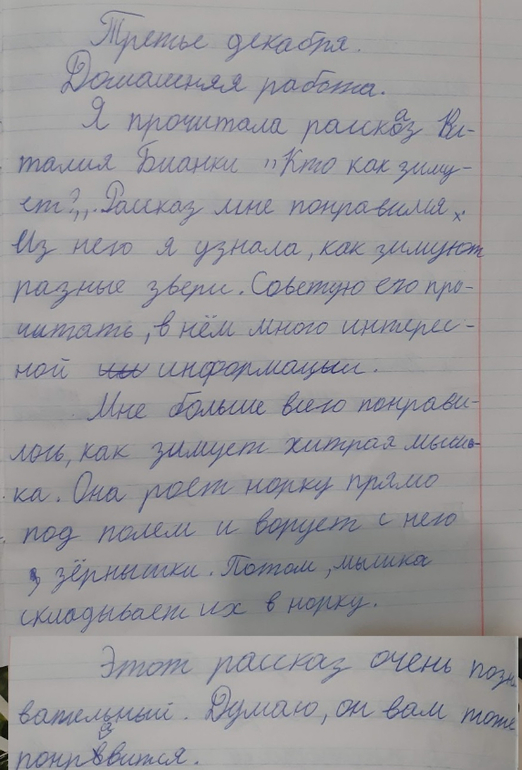 Третье декабря.
Домашняя работа.
Я прочитала рассказ Ви-
талия Бианки "Кто как зиму-
ет?". Рассказ мне понравился.
Из него я узнала, как зимуют
разные звери. Советую его про-
читать, в нём много интерес-
ной информации.
Мне больше всего понрави-
лось, как зимует хитрая мыш-
ка. Она роет норку прямо
под полем и ворует с него
зёрнышки. Потом, мышка
складывает их в норку.
Этот рассказ очень позна-
вательный. Думаю, он вам тоже
понравится.